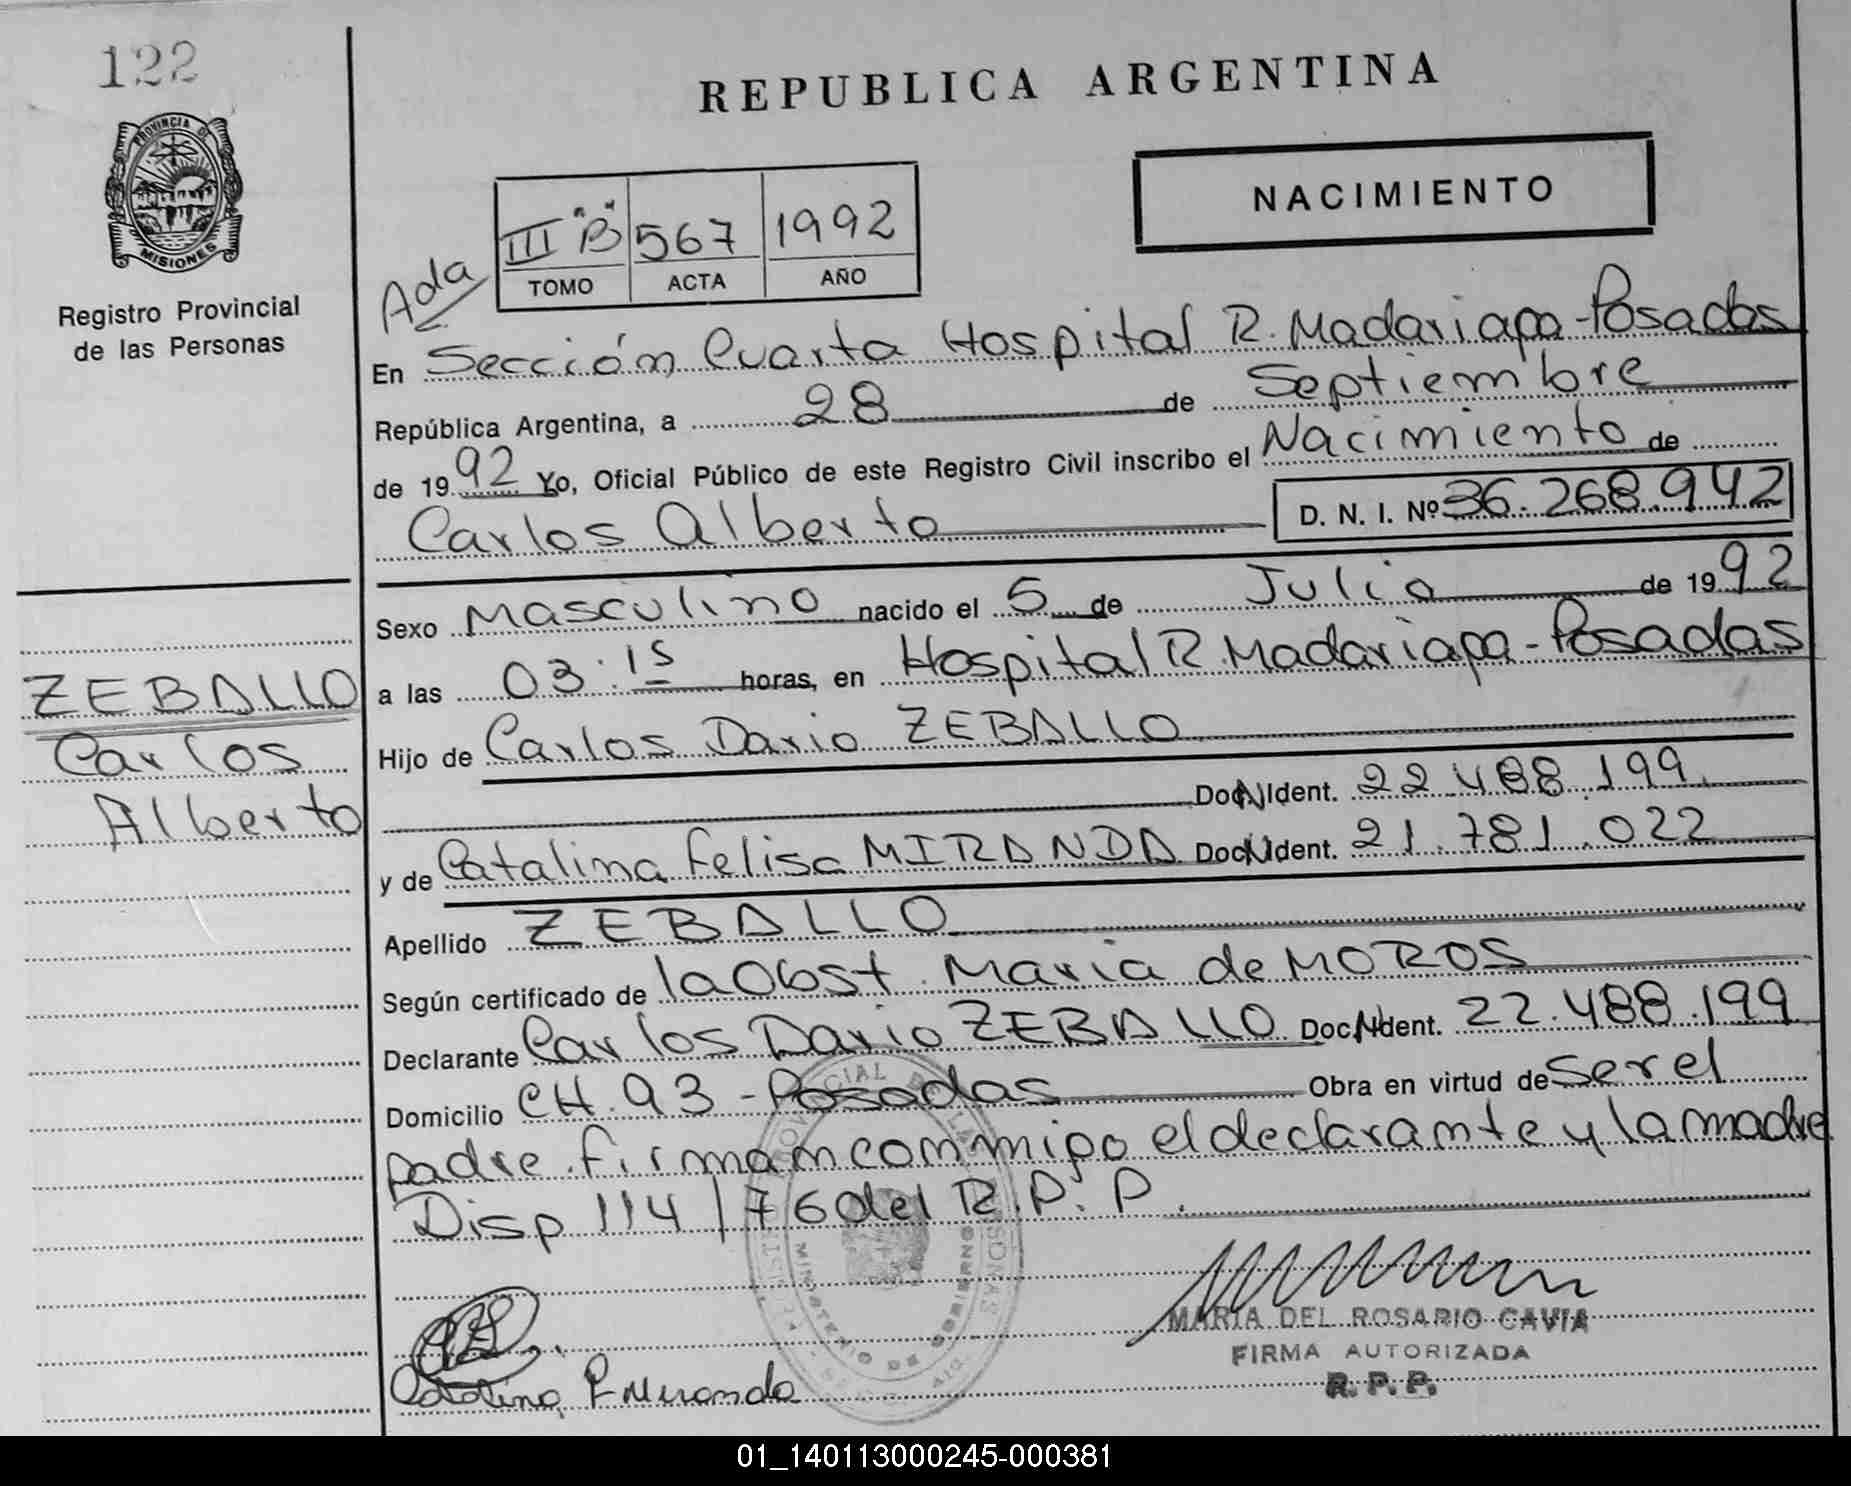 122
REPUBLICA ARGENTINA
PROVINCIA DE MISIONES
Registro Provincial
de las Personas
NACIMIENTO
III "B" 567 1992
TOMO ACTA AÑO
Ada
En Sección Cuarta Hospital R. Madariaga - Posadas
República Argentina, a 28 de Septiembre
de 1992 Yo, Oficial Público de este Registro Civil inscribo el Nacimiento de
Carlos Alberto D. N. I. Nº 36.268.942
Sexo Masculino nacido el 5 de Julio de 1992
a las 03:15 horas, en Hospital R. Madariaga - Posadas
Hijo de Carlos Dario ZEBALLO
Doc. Ident. 22.488.199
y de Catalina Felisa MIRANDA Doc. Ident. 21.781.022
Apellido ZEBALLO
Según certificado de la Obst. Maria de MOROS
Declarante Carlos Dario ZEBALLO Doc. Ident. 22.488.199
Domicilio CH. 93 - Posadas Obra en virtud de Ser el
padre. Firman conmigo el declarante y la madre
Disp 114/76 del R.P.P.
ZEBALLO
Carlos
Alberto
MINISTERIO DE GOBIERNO
MARIA DEL ROSARIO CAVIA
FIRMA AUTORIZADA
R. P. P.
Catalina F Miranda
01_140113000245-000381